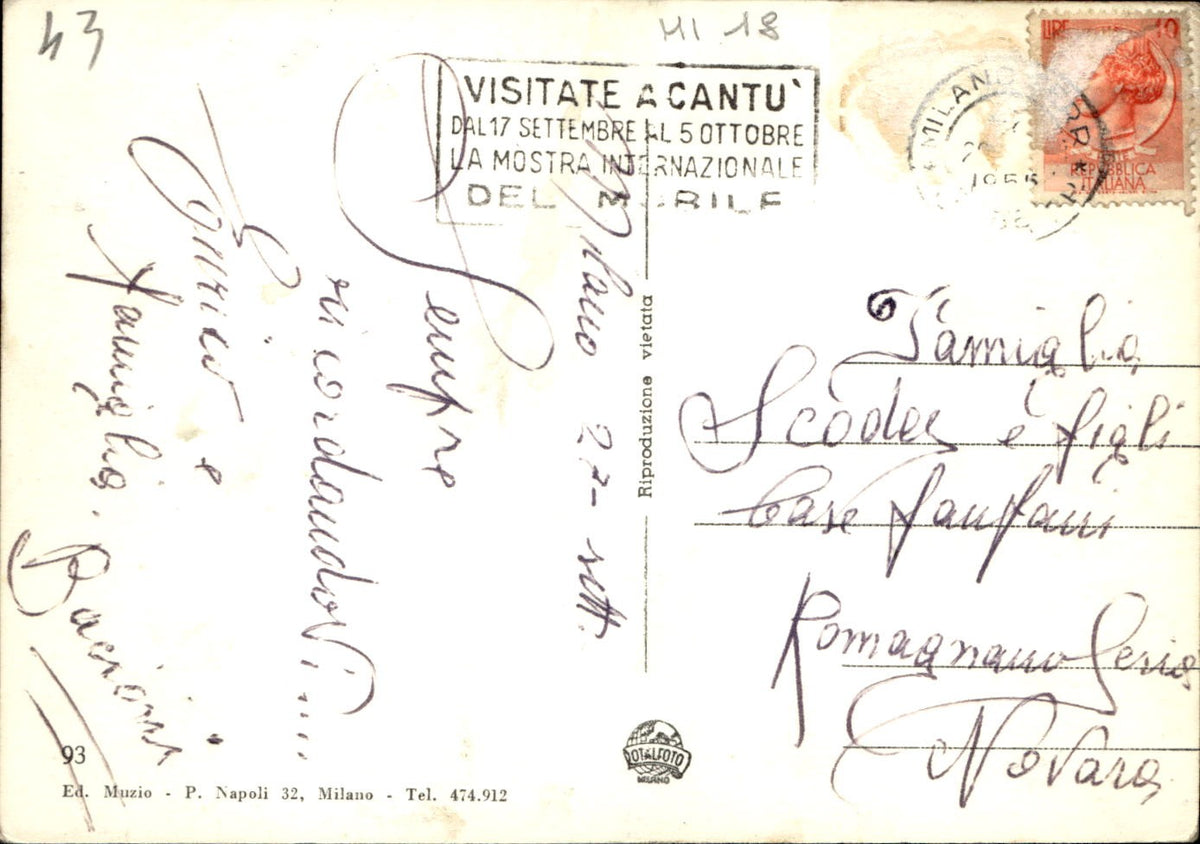 43
MI 18
VISITATE A CANTU'
DAL 17 SETTEMBRE AL 5 OTTOBRE
LA MOSTRA INTERNAZIONALE
DEL MOBILE
MILANO
1955
LIRE 10
REPUBBLICA
ITALIANA
Milano 27- sett.
Sempre
ricordandoVi....
Enrico e
famiglia.
Bacioni
Riproduzione vietata
Famiglia
e figli
Case fanfani
Romagnano Sesia
Novara
93
Ed. Muzio - P. Napoli 32, Milano - Tel. 474.912
ROTALFOTO
MILANO